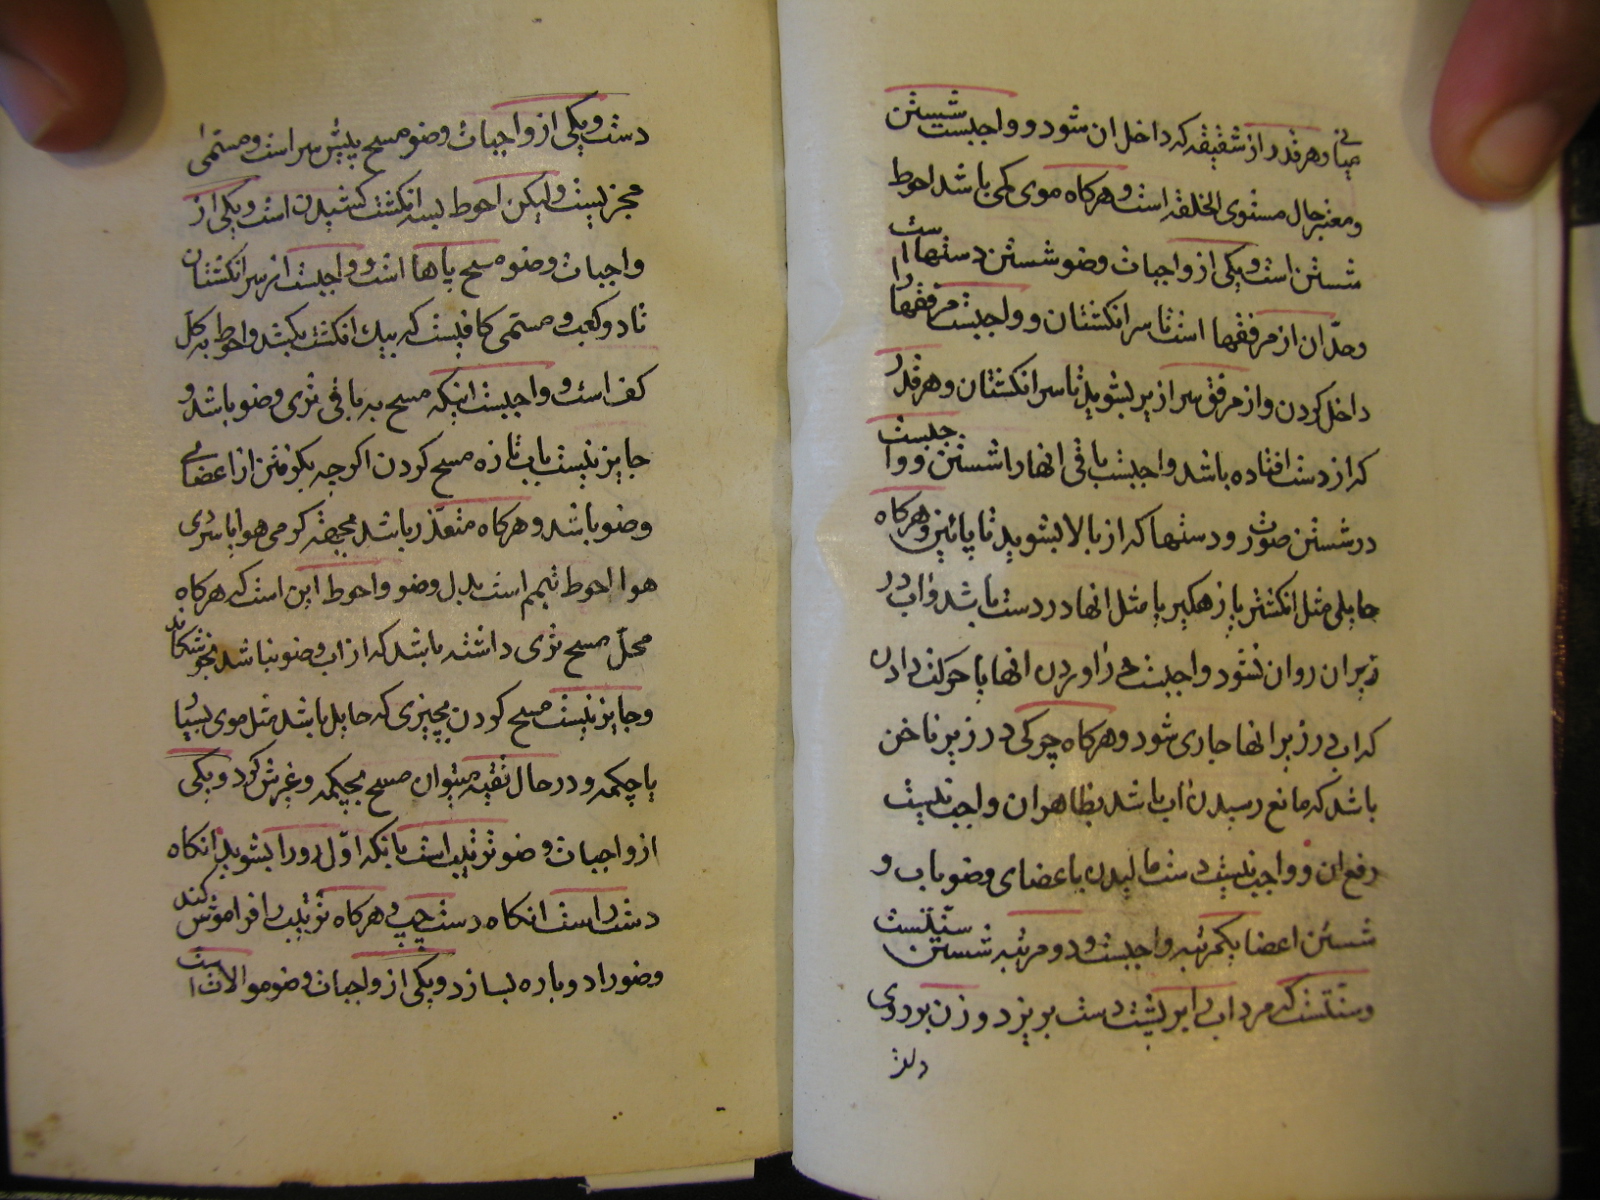 میانی وهرقدر از شقیقه که داخل ان شود و واجبست شستن
ومعتبر حال مستوی الخلقه است وهرکاه موی کمی باشد احوط
شستن است ویکی از واجبات وضو شستن دستها است
وحدّ ان از مرفقها است تا سر انکشتان و واجبست مرفقها را
داخل کردن و از مرفق سرازیر بشوید تا سر انکشتان وهرقدر
که از دست افتاده باشد واجبست باقی انها را شستن و واجبست
در شستن صورت و دستها که از بالا بشوید تا پائین وهرکاه
حایلی مثل انکشتر یا زهکیر یا مثل انها در دست باشد واب در
زیر ان روان نشود واجبست در اوردن انها یا حرکت دادن
که اب در زیر انها جاری شود وهرکاه چرکی در زیر ناخن
باشد که مانع رسیدن اب باشد بظاهر ان واجب نیست
رفع ان و واجب نیست دست مالیدن باعضای وضو باب و
شستن اعضا یکمرتبه واجبست و دو مرتبه شستن سنّتست
وسنّتست که مرد اب را بر پشت دست بریزد و زن بر روی
دست ویکی از واجبات وضو مسح پیش سر است ومستمی
مجزیست ولیکن احوط بسه انکشت کشیدن است ویکی از
واجبات وضو مسح پاها است و واجبست از سر انکشتان
تا دو کعب و مستمی کافیست که بیك انکشت بکشد واحوط به کل
کف است و واجبست اینکه مسح به باقی تری وضو باشد و
جایز نیست باب تازه مسح کردن اکرچه بکرفتن از اعضای
وضو باشد وهرکاه متعذر باشد بجهة کرمی هوا یا سردی
هوا احوط تیمم است بدل وضو واحوط این است که هرکاه
محلّ مسح تری داشته باشد که از اب وضو نباشد بخوشکاند
وجایز نیست مسح کردن بچیزی که حایل باشد مثل موی بسیار
یا چکمه و در حال تقیه میتوان مسح بچکمه وغیرش کرد ویکی
از واجبات وضو ترتیب است بانکه اوّل رو را بشوید انکاه
دست راست انکاه دست چپ وهرکاه ترتیب را فراموش کند
وضو را دوباره بسازد ویکی از واجبات وضو موالات است